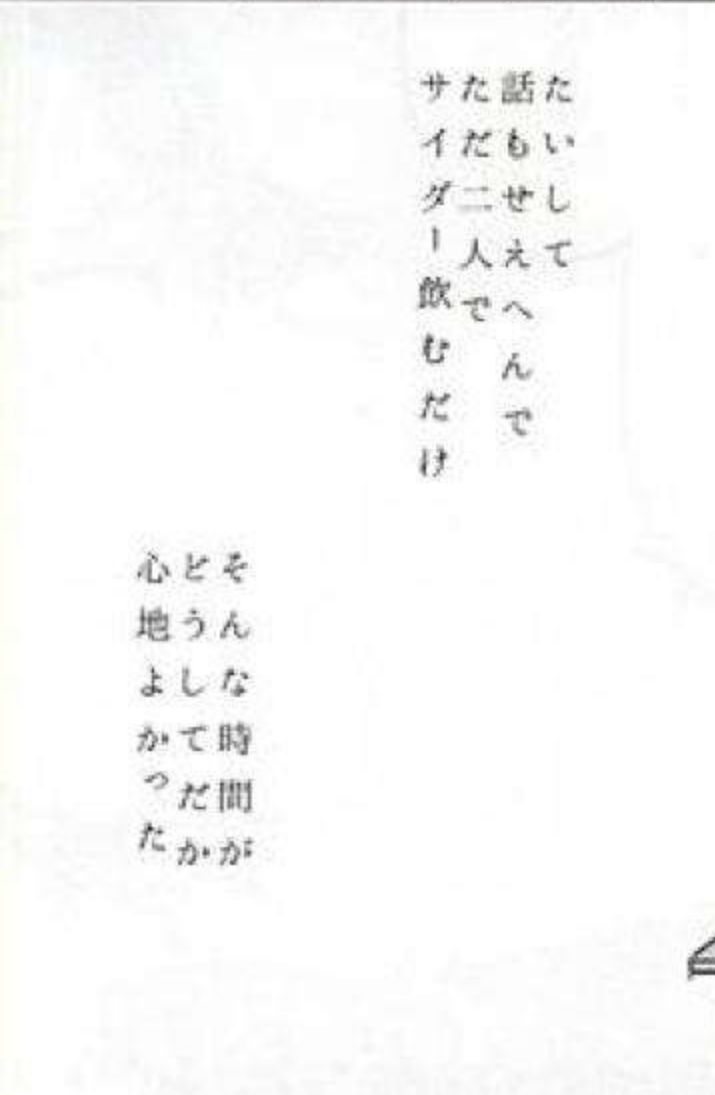 たいして
話もせえへんで
ただ二人で
サイダー飲むだけ
そんな時間が
どうしてだか
心地よかった